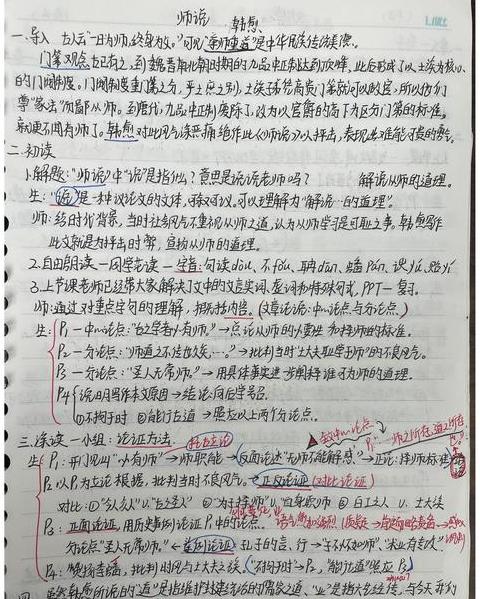 师说 韩愈
一.导入 古人云"一日为师,终身为父。"可见"尊师重道"是中华民族传统美德。
门第观念古已有之,到魏晋南北朝时期的九品中正制达到顶峰,此后形成了以士族为核心
的门阀制度。门阀制度重门第之分,士族子弟凭高贵门第就可以做官,所以他们
尊"家法"而鄙从师。到唐代,九品中正制废除了,改为以官爵的高下为区分门第的标准。
韩愈对此风气深恶痛绝作此《师说》以抨击,表现出难能可贵的
二.初读
1.解题:"师说"中"说"是指什么?意思是说说老师吗? 解说从师的道理。
生:"说"是一种议论文的文体,可以理解为"解说…的道理"。
师:结合时代背景,当时社会风气不重视从师之道,认为从师学习是可耻之事,韩愈写作
此文就是为抨击时弊,宣扬从师的道理。
2.自由朗读—同学范读—字音:句读dòu、不fǒu、聃dān、蟠Pán、
3.上节课老师已经带大家解决了文中的文言实词、虚词和特殊句式,PPT—复习。
师:通过对重点字句的理解,概括内容。(文章论说:中心论点与分论点)
生:P1—中心论点:"古之学者必有师。"→点论从师的必要性和择师的标准。
P2—分论点:"师道之不传也久矣,…。"→批判当时"士大夫耻学于师"的不良风气。
P3—分论点:"圣人无常师。"→用具体事实进一步阐释谁可为师的道理。
P4{说明写作本文原因→结论:向后学号召。
①不拘于时 ②能行古道→照应以上两个分论点。
三.深读—小组:论证方法。
生:P1:开门见山"必有师"→师职能→反面论述"无师不能解惑"→正论:择师标准
P2:以P1为立论根据,批判当时不良风气。→正反论证(对比论证)
对比:①"今众人"v."古圣人" ②"为子择师"v."自身耻师" ③百工之人 v. 士大夫
P3:正面论证,用历史事例论证P1中的论点。
分论点"圣人无常师。"←举例论证:孔子的言、行→"弟子不必不如师","术业有专攻"
P4:赞扬李蟠,批判时风与士大夫之族。"不拘于时"→P2,"能行古道"照应P3。